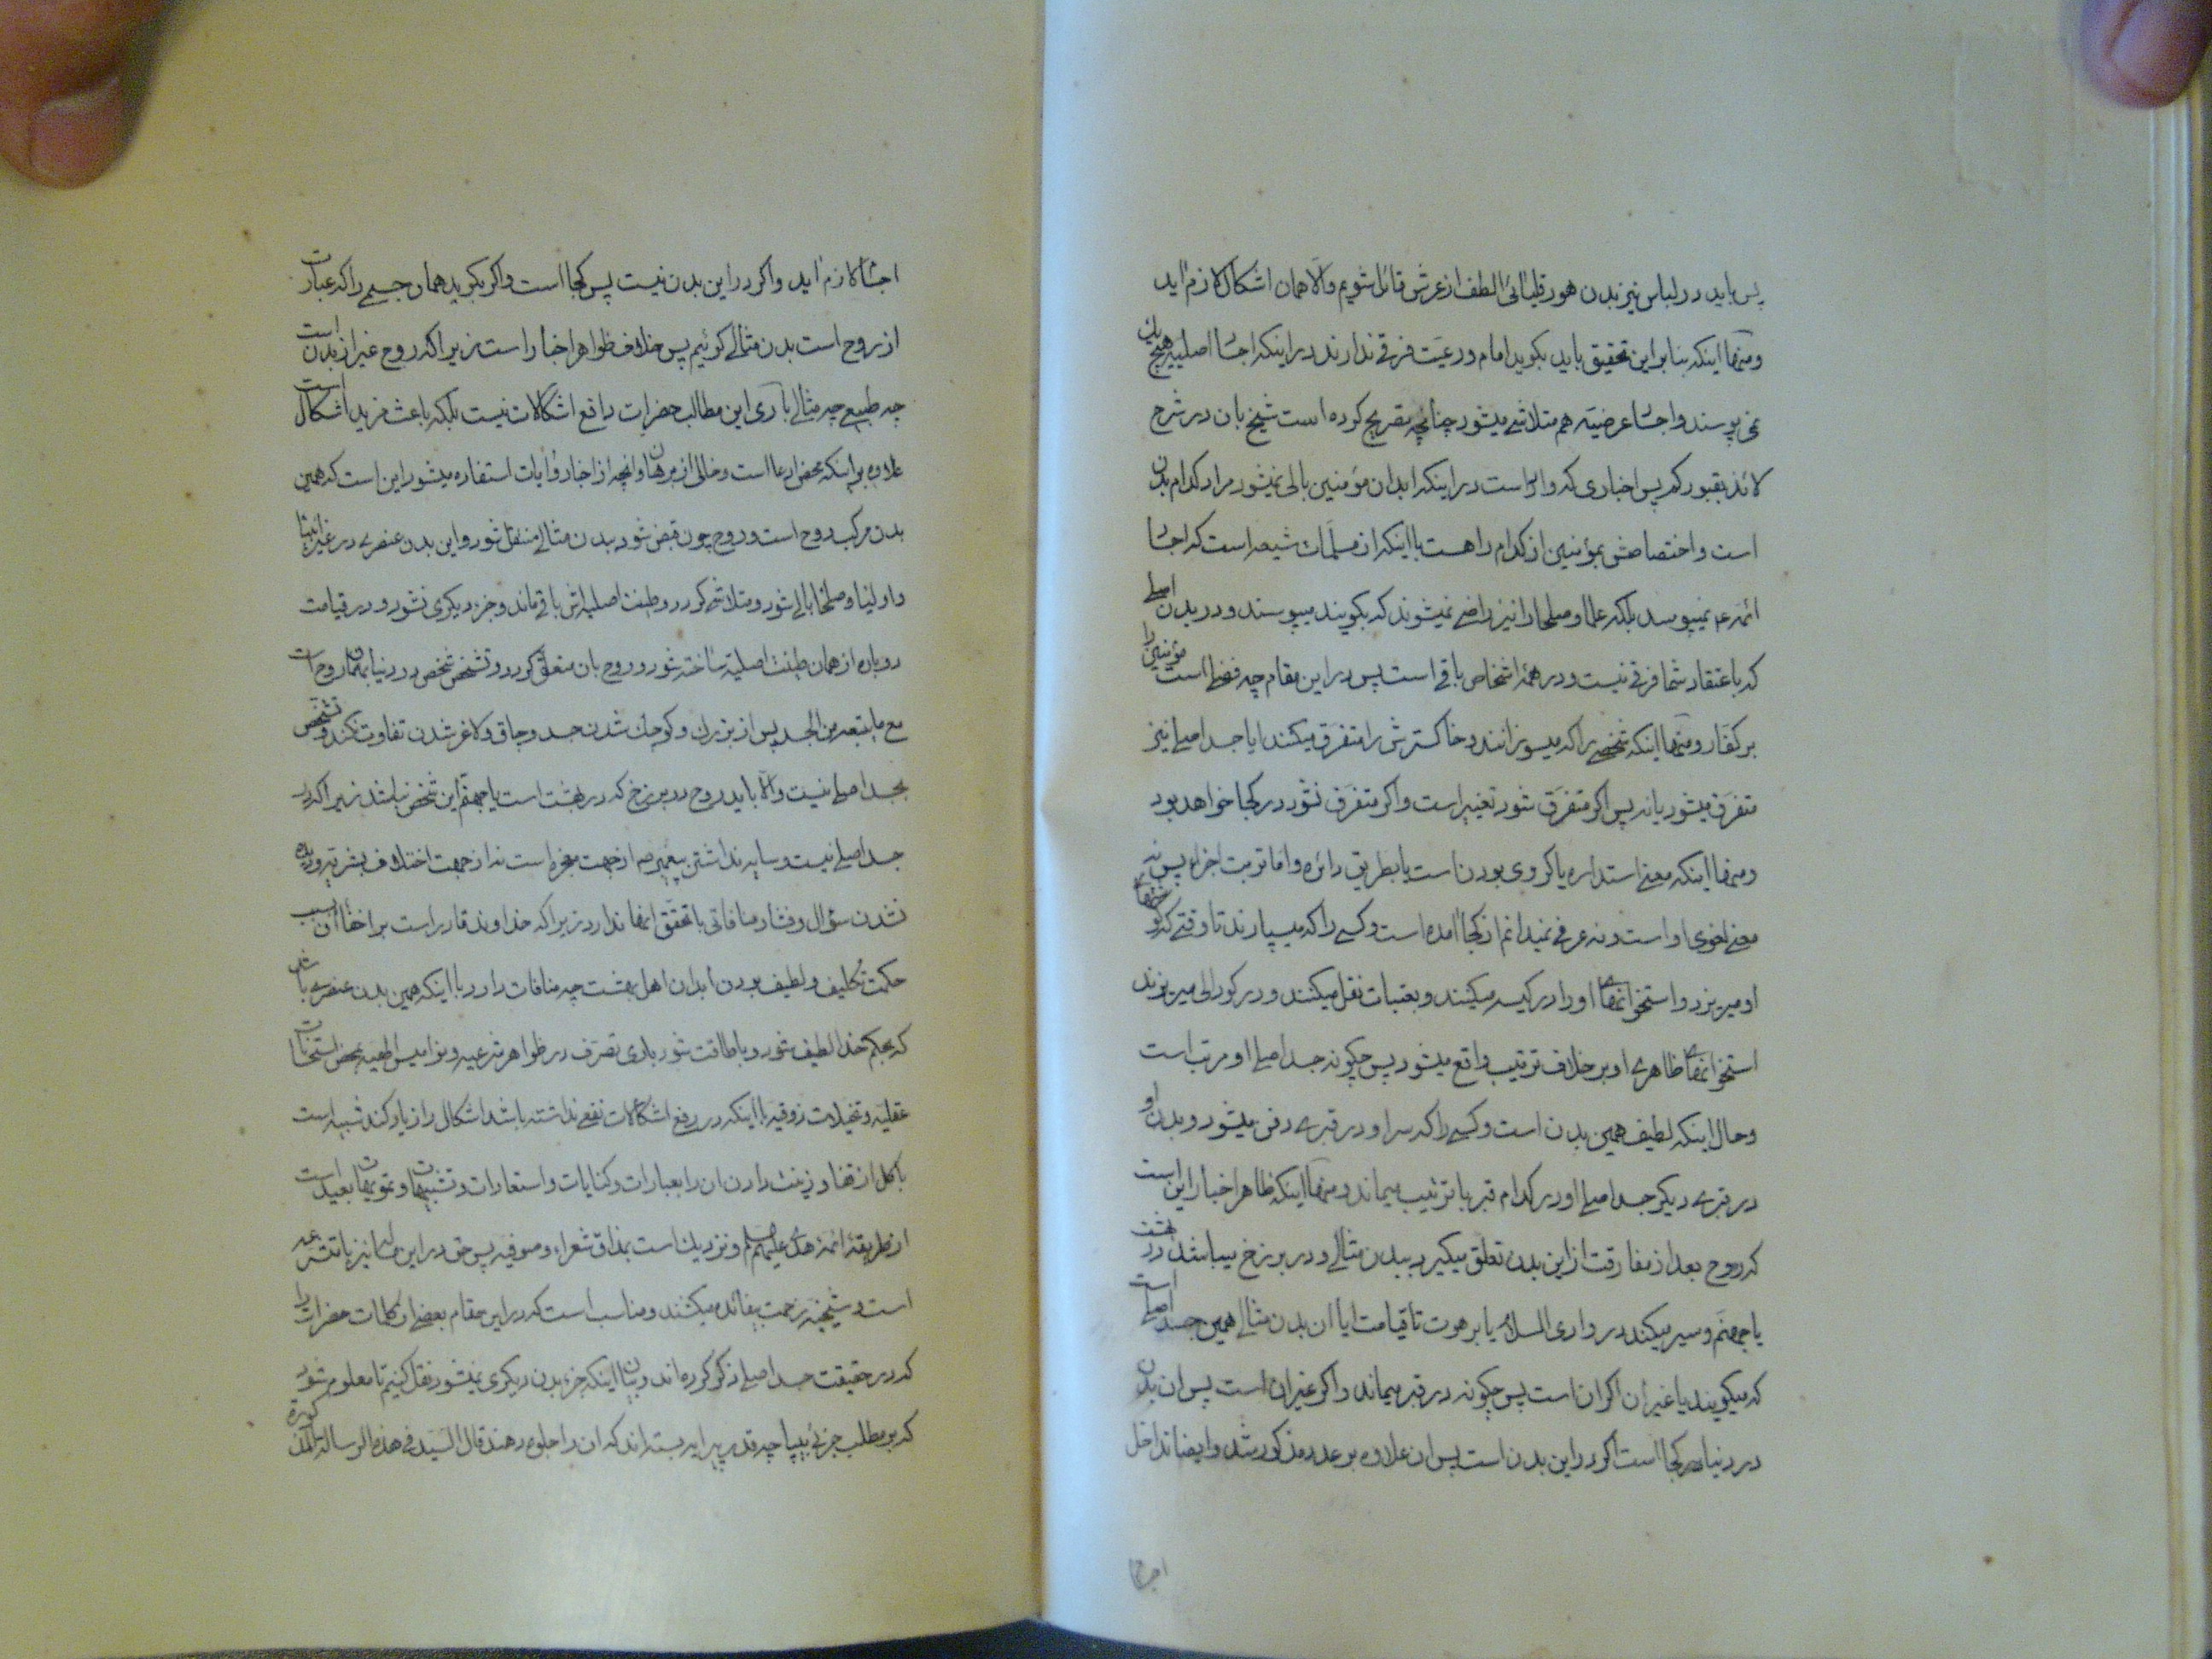 پس باید در لباس نیز بدن هورقلیائی الطف از عرش قائل شویم والا همان اشکال لازم آید
ومنها اینکه بنابر این تحقیق باید بکوید امام ورعیت فرقی ندارند در اینکه اجساد اصلییه هیچ یک
نمی پوسند واجساد عرضیته هم متلاشی میشود چنانچه تصریح کرده است شیخ بان در شرح
لائذ بقبورکم پس اخباری که وارد است در اینکه ابدان مؤمنین بالی نمیشود مراد کدام بدن
است واختصاصش بمؤمنین از کدام راهست با اینکه از مسلّمات شیعه است که اجساد
ائمه ع نمیپوسد بلکه علما وصلحا را نیز راضی نمیشوند که بکویند میپوسند ودر بدن اصلی
که باعتقاد شما فرقی نیست ودر همهٔ اشخاص باقی است پس در این مقام چه فضلی است مؤمنین را
بر کفار ومنها اینکه شخصی را که میسوزانند وخاکسترش را متفرق میکنند ایا جسد اصلی نیز
متفرق میشود یا نه پس اکر متفرق شود تغییر است واکر متفرق نشود در کجا خواهد بود
ومنها اینکه معنی استداره یا کروی بودن است یا بطریق دائره واما تربت اجزاء پس نه
معنی لغوی او است ونه عرفی نمیدانم از کجا آمده است وکسی را که میسپارند تا وقتی که کوشتهای
او میریزد واستخوانهای او را در کیسه میکنند وبعتبات نقل میکنند ودر کورالی میریزند
استخوانهای ظاهری او بر خلاف ترتیب واقع میشود پس چکونه جسد اصلی او مرتب است
وحال اینکه لطیف همین بدن است وکسی را که سر او در قبری دفن میشود وبدن او
در قبری دیکر جسد اصلی او در کدام قبر با ترتیب میماند ومنها اینکه ظاهر اخبار این است
که روح بعد از مفارقت از این بدن تعلق میکیرد ببدن مثالی ودر برزخ میباشد در بهشت
یا جهنم وسیر میکند در وادی السلام یا برهوت تا قیامت ایا ان بدن مثالی همین جسد اصلی است
که میکویند یا غیر ان اکر ان است پس چکونه در قبر میماند واکر غیر ان است پس ان بدن
در دنیا در کجا است اکر در این بدن است پس ان علاوه بر عدد مذکور شد وایضا تداخل
اجسا
اجسا لازم آید واکر در این بدن نیست پس کجا است واکر بکوید همان جسمی را که عبارت
از روح است بدن مثالی کوئیم پس خلاف ظواهر اخبار است زیرا که روح غیر از بدن است
چه طبیعی چه مثالی باری این مطالب حضرات رافع اشکالات نیست بلکه باعث مزید اشکال است
علاوه بر اینکه محض ادعا است وخالی از برهان وانچه از اخبار وایات استفاده میشود این است که همین
بدن مرکب روح است وروح چون قبض شود ببدن مثالی منتقل شود واین بدن عنصری در غیر انبیا
واولیا وصلحا بالی شود ومتلاشی کردد وطینت اصلیه اش باقی ماند وجزء دیکری نشود ودر قیامت
دوباره از همان طینت اصلیه ساخته شود وروح بان متعلق کردد وتشخص شخص در دنیا بهمان روح است
مع ما یتبعه من الجسد پس از بزرک وکوچک شدن جسد وچاق ولاغر شدن تفاوت نکند وتشخص
بجسد اصلی نیست والا باید روح در برزخ که در بهشت است یا جهنم این شخص نباشد زیرا که در
جسد اصلی نیست وسایه نداشتن پیغمبر ص از جهت معجزه است نه از جهت اختلاف بشریه ودیده
نشدن سؤال وفشار منافاتی با تحقق انها ندارد زیرا که خداوند قادر است بر اخفاء ان بسبب
حکمت تکلیف ولطیف بودن ابدان اهل بهشت چه منافات دارد با اینکه همین بدن عنصری باشد
که بحکم خدا لطیف شود وبا طاقت شود باری تصرف در ظواهر شرعیه ونوامیس الهیه بمحض استحسانات
عقلیه وتخیلات ذوقیه با اینکه در رفع اشکالات نفعی نداشته باشد اشکال را زیاد کند شبیه است
وزینت دادن ان را بعبارات وکنایات واستعارات وتشبیهات وتمویهات بعید است
از طریقهٔ ائمهٔ هدی علیهم السلم ونزدیک است بمذاق شعراء وصوفیه پس حق در این مسئله نیز با متشرعه
است وشیخیه زحمت بیفائده میکشند ومناسب است که در این مقام بعضی از کلمات حضرات را
که در حقیقت جسد اصلی ذکر کرده اند وبیان اینکه جزء بدن دیکری نمیشود نقل کنیم تا معلوم شود
که بر مطلب جزئی بیپا چه قدر پیرایه بسته اند که ان را جلوه دهند قال السید فی هذه الرسالة المذکورة